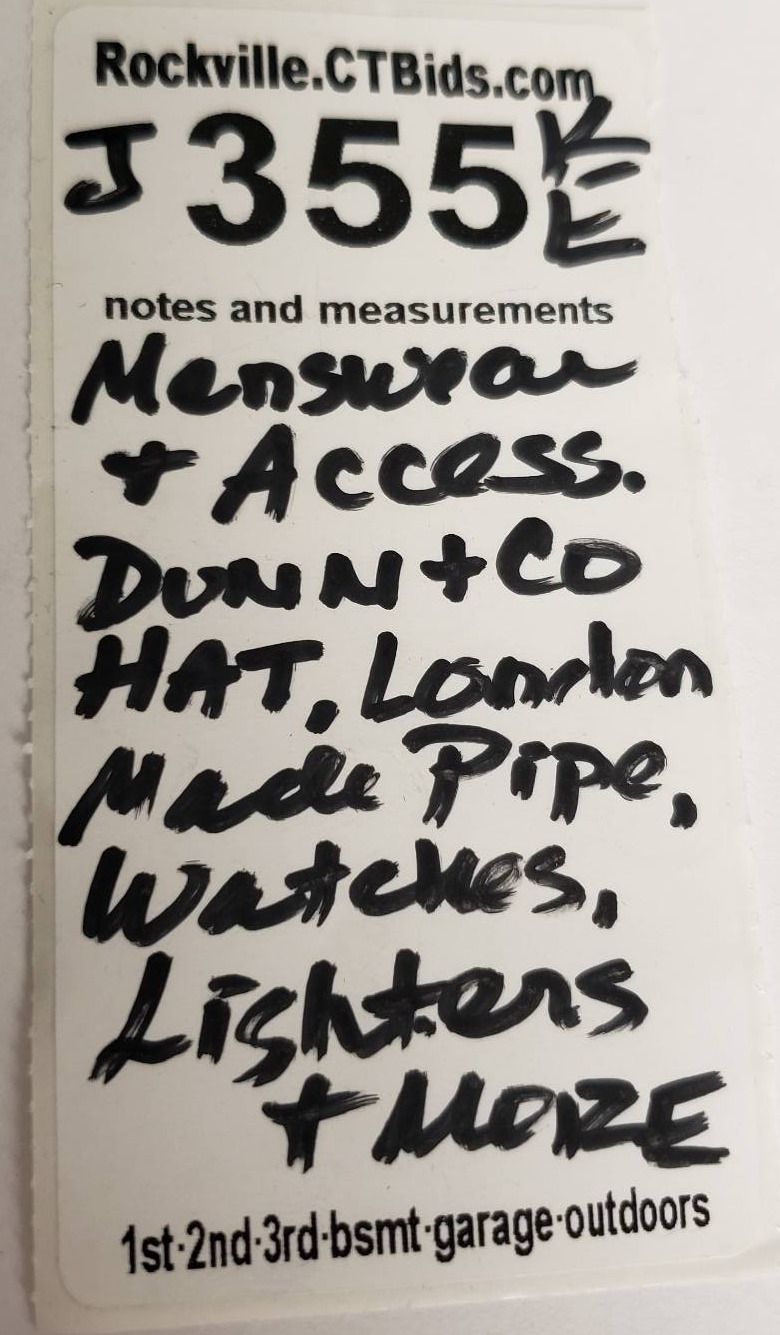 Rockville.CTBids.com
J 355 KE
notes and measurements
Menswear
+ Access.
DUNN + CO
HAT, London
Made Pipe,
Watches,
Lighters
+ MORE
1st·2nd·3rd·bsmt·garage·outdoors